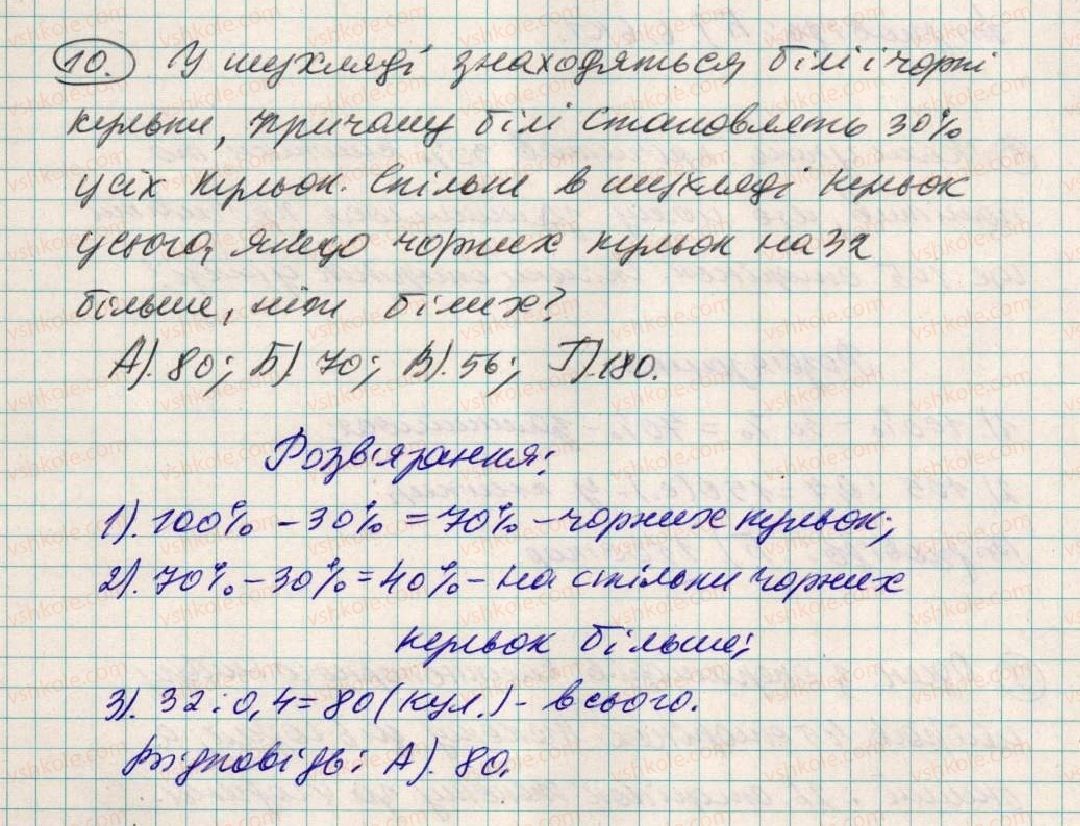 10. У шухляді знаходяться білі і чорні
кульки, причому білі становлять 30%
усіх кульок. Скільки в шухляді кульок
усього, якщо чорних кульок на 32
більше, ніж білих?
А). 80; Б) 70; В). 56; Г). 180.
Розв'язання:
1). 100% - 30% = 70% - чорних кульок;
2). 70% - 30% = 40% - на стільки чорних
кульок більше;
3). 32 : 0,4 = 80 (кул.) - всього.
Відповідь: А). 80.